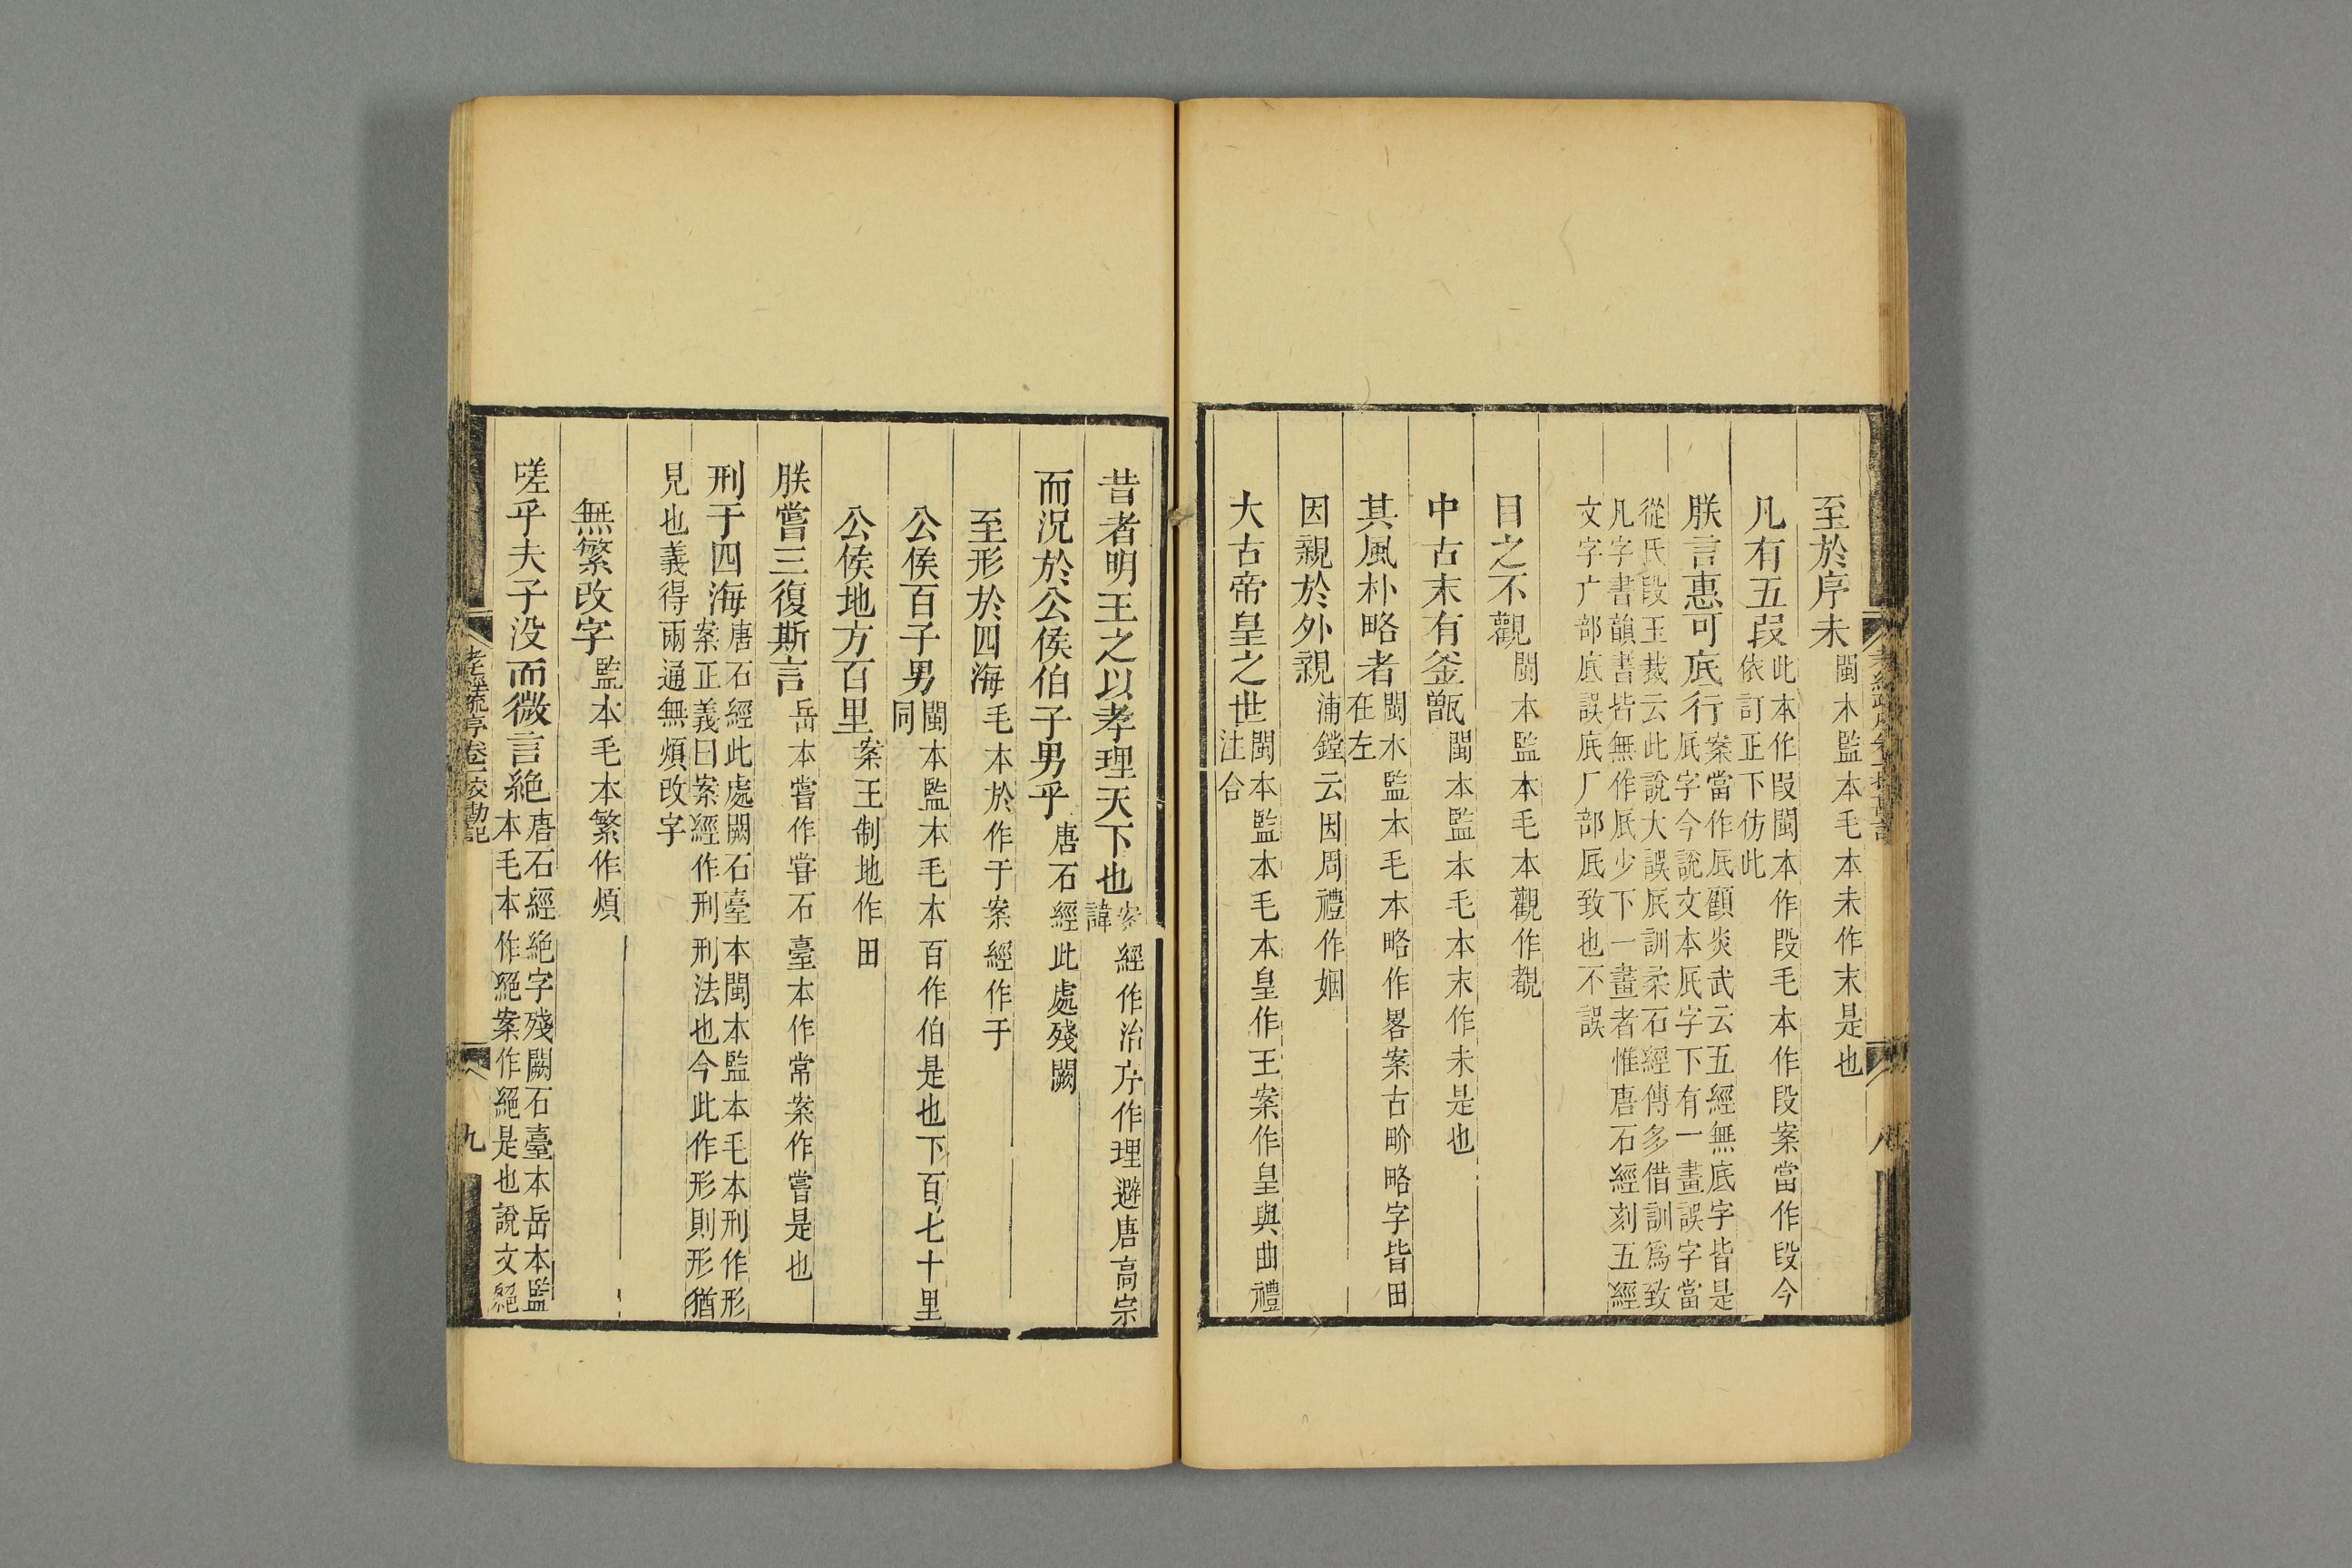 至於序末閩本監本毛本未作末是也
凡有五段此本作叚閩本作段毛本作段案當作段今
依訂正下仿此
朕言惠可底行案當作厎顧炎武云五經無底字皆是
厎字今說文本厎字下有一畫誤字當
從氏段玉裁云此說大誤厎訓柔石經傳多借訓爲致
凡字書韻書皆無作厎少下一畫者惟唐石經刻五經
文字广部底誤厎厂部厎致也不誤
目之不觀閩本監本毛本觀作覩
中古末有釜甑閩本監本毛本末作未是也
其風朴略者閩本監本毛本略作畧案古畍略字皆田
在左
因親於外親浦鏜云因周禮作姻
大古帝皇之世閩本監本毛本皇作王案作皇與曲禮
注合
昔者明王之以孝理天下也案經作治序作理避唐高宗
諱
而況於公侯伯子男乎唐石經此處殘闕
至形於四海毛本於作于案經作于
公侯百子男閩本監本毛本百作伯是也下百七十里
同
公侯地方百里案王制地作田
朕嘗三復斯言岳本嘗作甞石臺本作常案作嘗是也
刑于四海唐石經此處闕石臺本閩本監本毛本刑作形
案正義曰案經作刑刑法也今此作形則形猶
見也義得兩通無煩改字
無繁改字監本毛本繁作煩
嗟乎夫子没而微言絕唐石經絕字殘闕石臺本岳本監
本毛本作絕案作絕是也說文絕
孝經疏序卷一校勘記
九
八